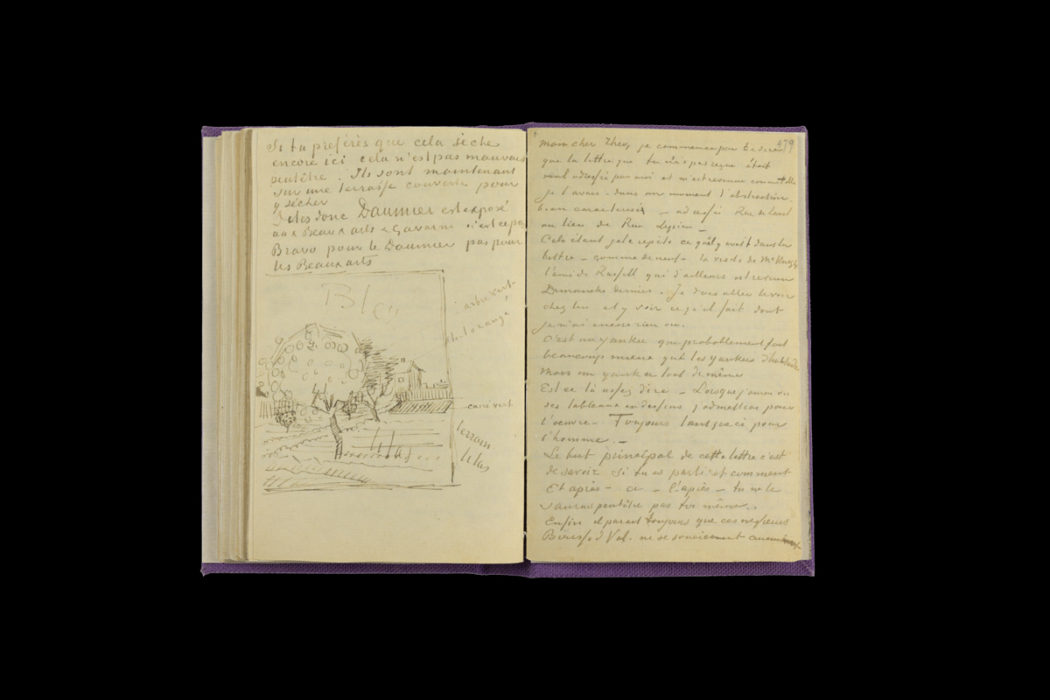 Si tu préfères que cela sèche
encore ici cela n'est pas mauvais
peutêtre. Ils sont maintenant
sur une terrasse couverte pour
y sécher
Dites donc Daumier est exposé
aux Beaux arts & Gavarni n'est ce pas
Bravo pour le Daumier pas pour
les Beaux arts
Bleu
arbre vert
orangé
carré vert
lilas
terrain
lilas
479
mon cher Theo, je commence par te dire
que la lettre que tu n'as pas reçue était
mal adressée par moi et m'est revenue
je l'avais dans un moment d'abstraction
bien caractérisé – adressée Rue de Laval
au lieu de Rue Lepic –
Cela étant je te répète ce qu'il y avait dans la
lettre – comme de neuf – la visite de Mc Knight
l'ami de Russell qui d'ailleurs est revenu
Dimanche dernier. Je dois aller le voir
chez lui et y voir ce qu'il fait dont
je n'ai encore rien vu.
C'est un Yankee qui probablement fait
beaucoup mieux que les Yankees
mais un yankee tout de même
Est ce là assez dire – Lorsque j'aurai vu
ses tableaux ou dessins j'admettrai pour
l'oeuvre. Toujours pour
l'homme. –
Le but principal de cette lettre c'est
de savoir si tu as parti et comment
Et après – – l'après – tu ne le
sauras peutêtre pas toi même.
Enfin il parait toujours que ces messieurs
Boussod V al. ne se soucient